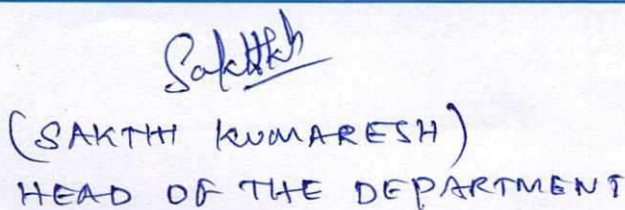 (SAKTHI KUMARESH)
HEAD OF THE DEPARTMENT